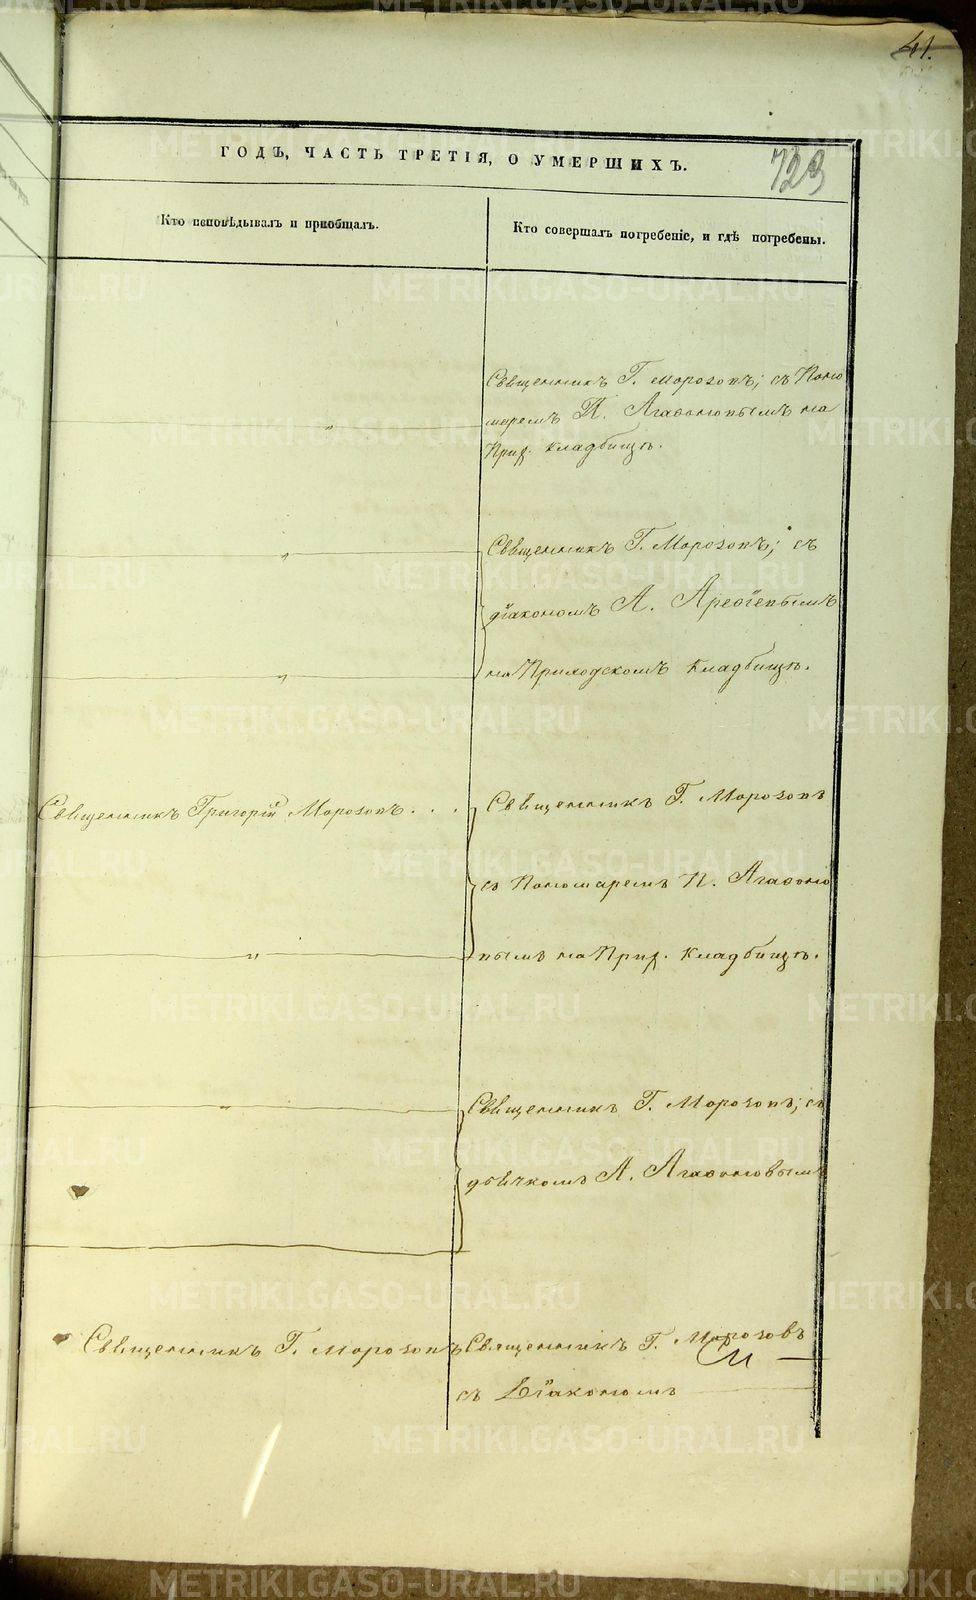 41.
ГОДЪ, ЧАСТЬ ТРЕТІЯ, О УМЕРШИХЪ.
723
Кто исповѣдывалъ и пріобщалъ.
Кто совершалъ погребеніе, и гдѣ погребены.
Священникъ Г. Морозовъ; съ Поно
маремъ П. Агаѳоновымъ на
Прих. кладбищѣ.
Священникъ Г. Морозовъ; съ
діакономъ А. Арефіевымъ
на Приходскомъ кладбищѣ.
Священникъ Григорій Морозовъ . . .
Священникъ Г. Морозовъ
съ Пономаремъ П. Агаѳоно
вымъ на Прих. кладбищѣ.
Священникъ Г. Морозовъ; съ
дьячкомъ А. Агаѳоновымъ
Священникъ Г. Морозовъ
Священникъ Г. Морозовъ
съ Діакономъ
METRIKI.GASO-URAL.RU